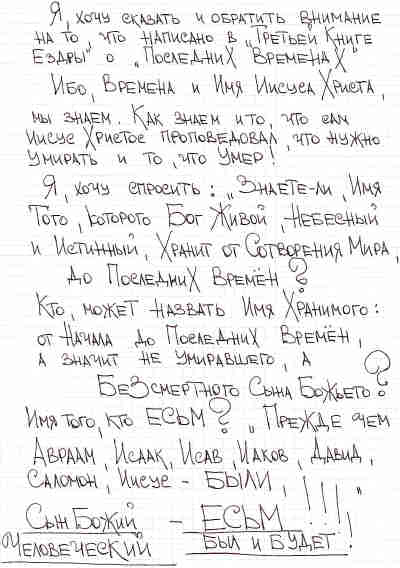 Я, хочу сказать и обратить внимание
на то, что написано в „Третьей Книге
Ездры" о „Последних Временах"
Ибо, Времена и Имя Иисуса Христа,
мы знаем. Как знаем и то, что сам
Иисус Христос проповедовал, что нужно
умирать и то, что умер!
Я, хочу спросить: „Знаете-ли, Имя
Того, которого Бог Живой, Небесный
и Истинный, Хранит от Сотворения Мира,
до Последних Времён?
Кто, может назвать Имя Хранимого:
от Начала до Последних Времён,
а значит не умиравшего, а
Безсмертного Сына Божьего?
Имя того, кто ЕСЬМ? „Прежде чем
Авраам, Исаак, Исав, Иаков, Давид,
Саломон, Иисус - БЫЛИ, !!!"
Сын Божий - ЕСЬМ
Человеческий Был и Будет!